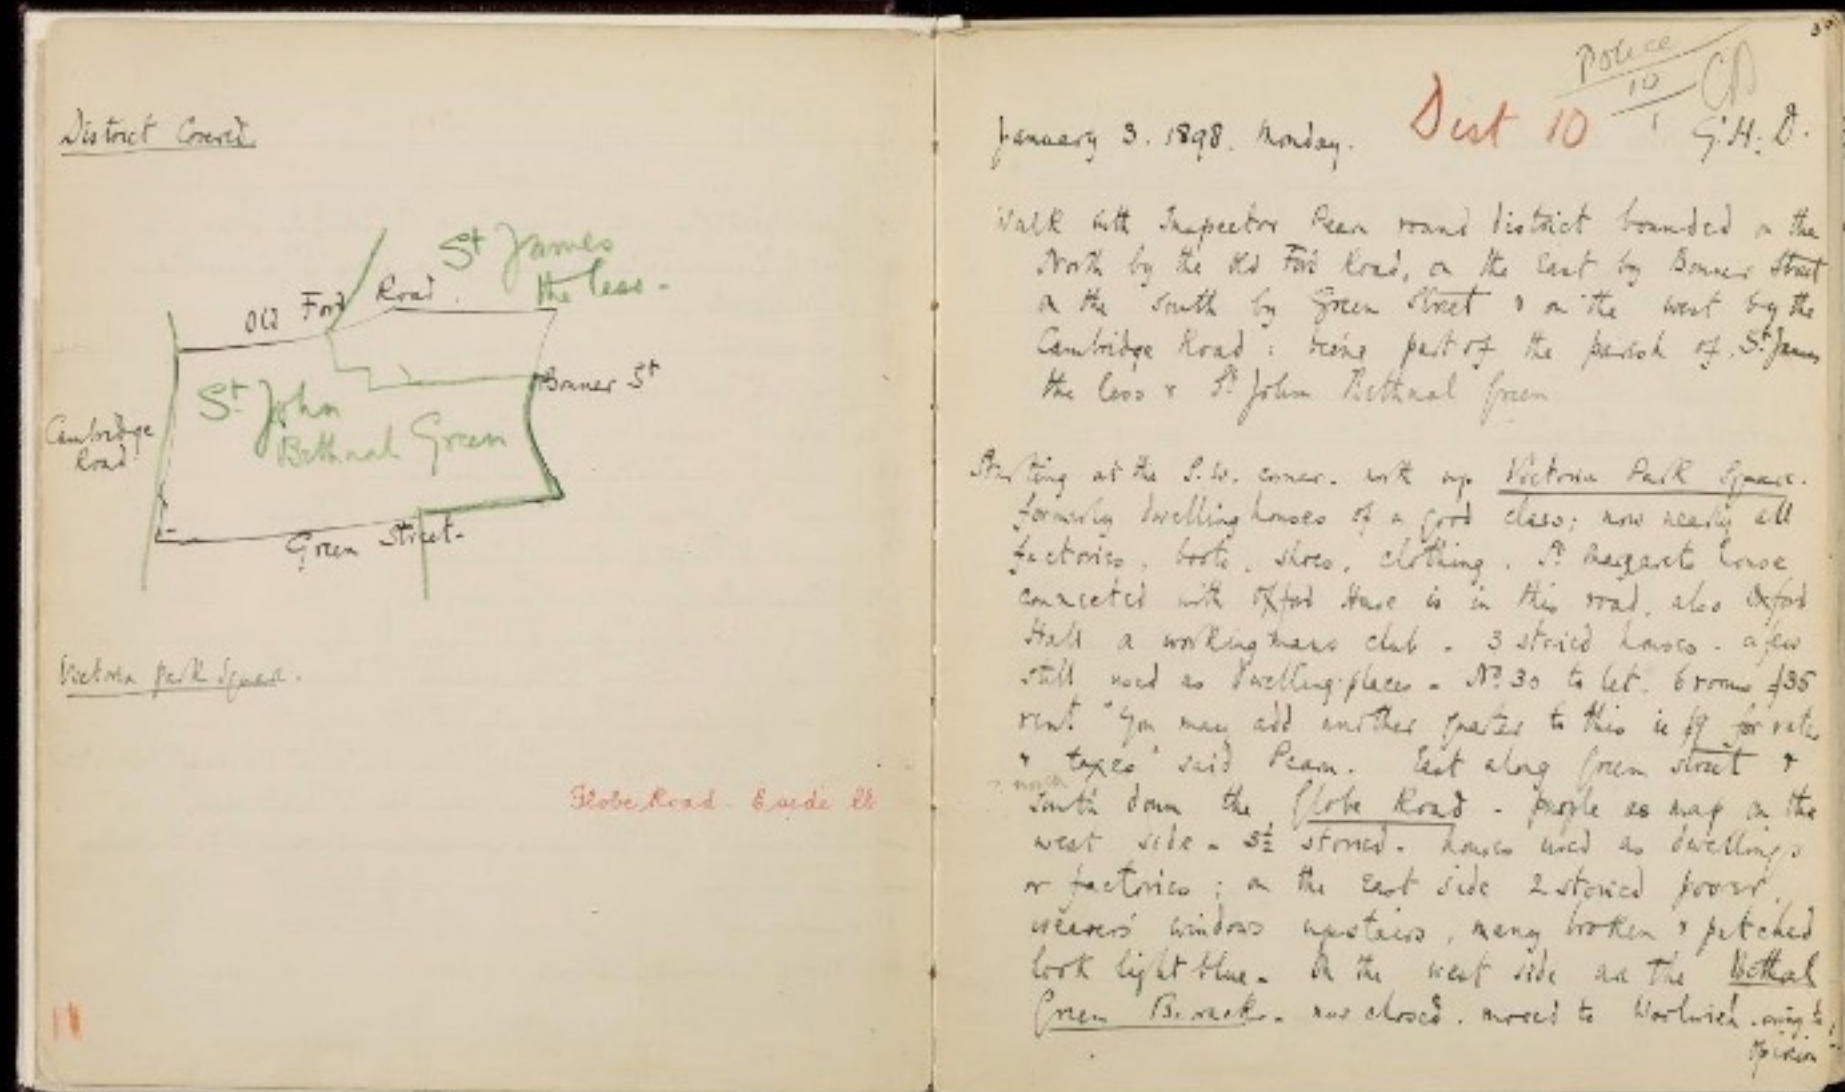 District Covered.
St James
the less.
Old Ford Road.
Bonner St
St. John
Bethnal Green
Cambridge
Road
Green Street.
Victoria Park Square.
Globe Road. E side lb
Police
10
1
January 3. 1898. Monday.
Dist 10
G.H.D.
Walk with Inspector Pearn round district bounded on the
North by the Old Ford Road, on the East by Bonner Street
on the South by Green Street & on the west by the
Cambridge Road: being part of the parish of St James
the less & St John Bethnal Green
Starting at the S.W. corner. north up Victoria Park Square.
formerly dwelling houses of a good class; now nearly all
factories, boots, shoes, clothing. St Margarets house
connected with Oxford House is in this road, also Oxford
Hall a working mans club. 3 storied houses. a few
still used as dwelling-places. No. 30 to let. 6 rooms £35
rent "You may add another quarter to this ie £9 for rates
& taxes" said Pearn. East along Green Street &
north
South down the Globe Road. purple as map on the
west side. 3½ storied. houses used as dwellings
or factories; on the East side 2 storied poorer,
weavers' windows upstairs, many broken & patched
look light blue. On the west side are the Bethnal
Green Barracks. now closed. moved to Woolwich. owing to
opinion